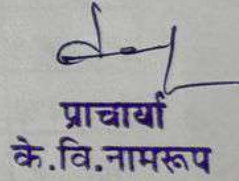 प्राचार्या
के.वि.नामरूप